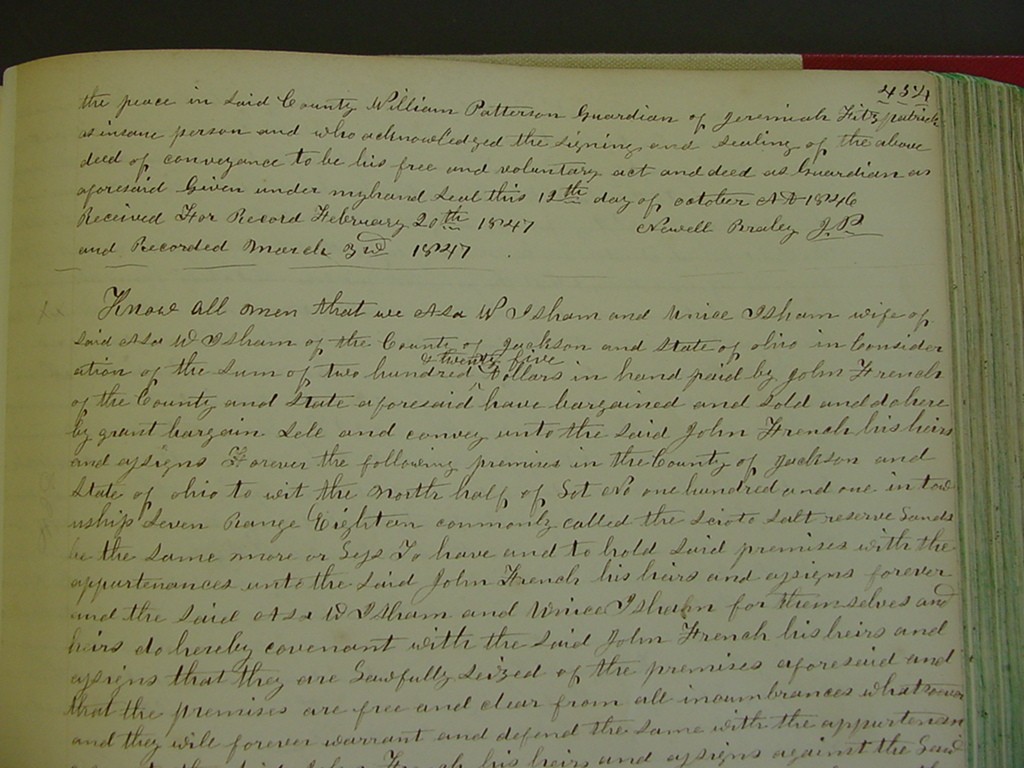 454
the peace in Said County William Patterson Guardian of Jeremiah Fitzpatrick
as insane person and who acknowledged the Signing and Sealing of the above
deed of conveyance to be his free and voluntary act and deed as Guardian as
aforesaid Given under my hand Seal this 12th day of october AD 1846
Received For Record February 20th 1847 Newell Braley J.P.
and Recorded March 3rd 1847
Know all men that we Asa W Isham and Unice Isham wife of
Said Asa W Isham of the County of Jackson and State of ohio in Consider
& twenty five
ation of the Sum of two hundred ^ Dollars in hand paid by John French
of the County and State aforesaid have bargained and Sold and do here
by grant bargain Sele and convey unto the Said John French his heirs
and assigns Forever the following premises in the County of Jackson and
State of ohio to wit the North half of Lot No one hundred and one in tow
nship Seven Range Eighteen commonly called the Scioto Salt reserve Lands
be the Same more or Less To have and to hold Said premises with the
appurtenances unto the Said John French his heirs and assigns forever
and the Said Asa W Isham and Unice Isham for themselves and
heirs do hereby covenant with the Said John French his heirs and
assigns that they are Lawfully Seized of the premises aforesaid and
that the premises are free and clear from all incumbrances whatsoever
and they will forever warrant and defend the Same with the appurtenan
John French his heirs and assigns against the Said